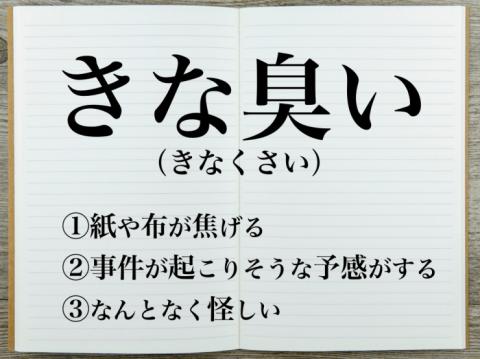 きな臭い
(きなくさい)
①紙や布が焦げる
②事件が起こりそうな予感がする
③なんとなく怪しい